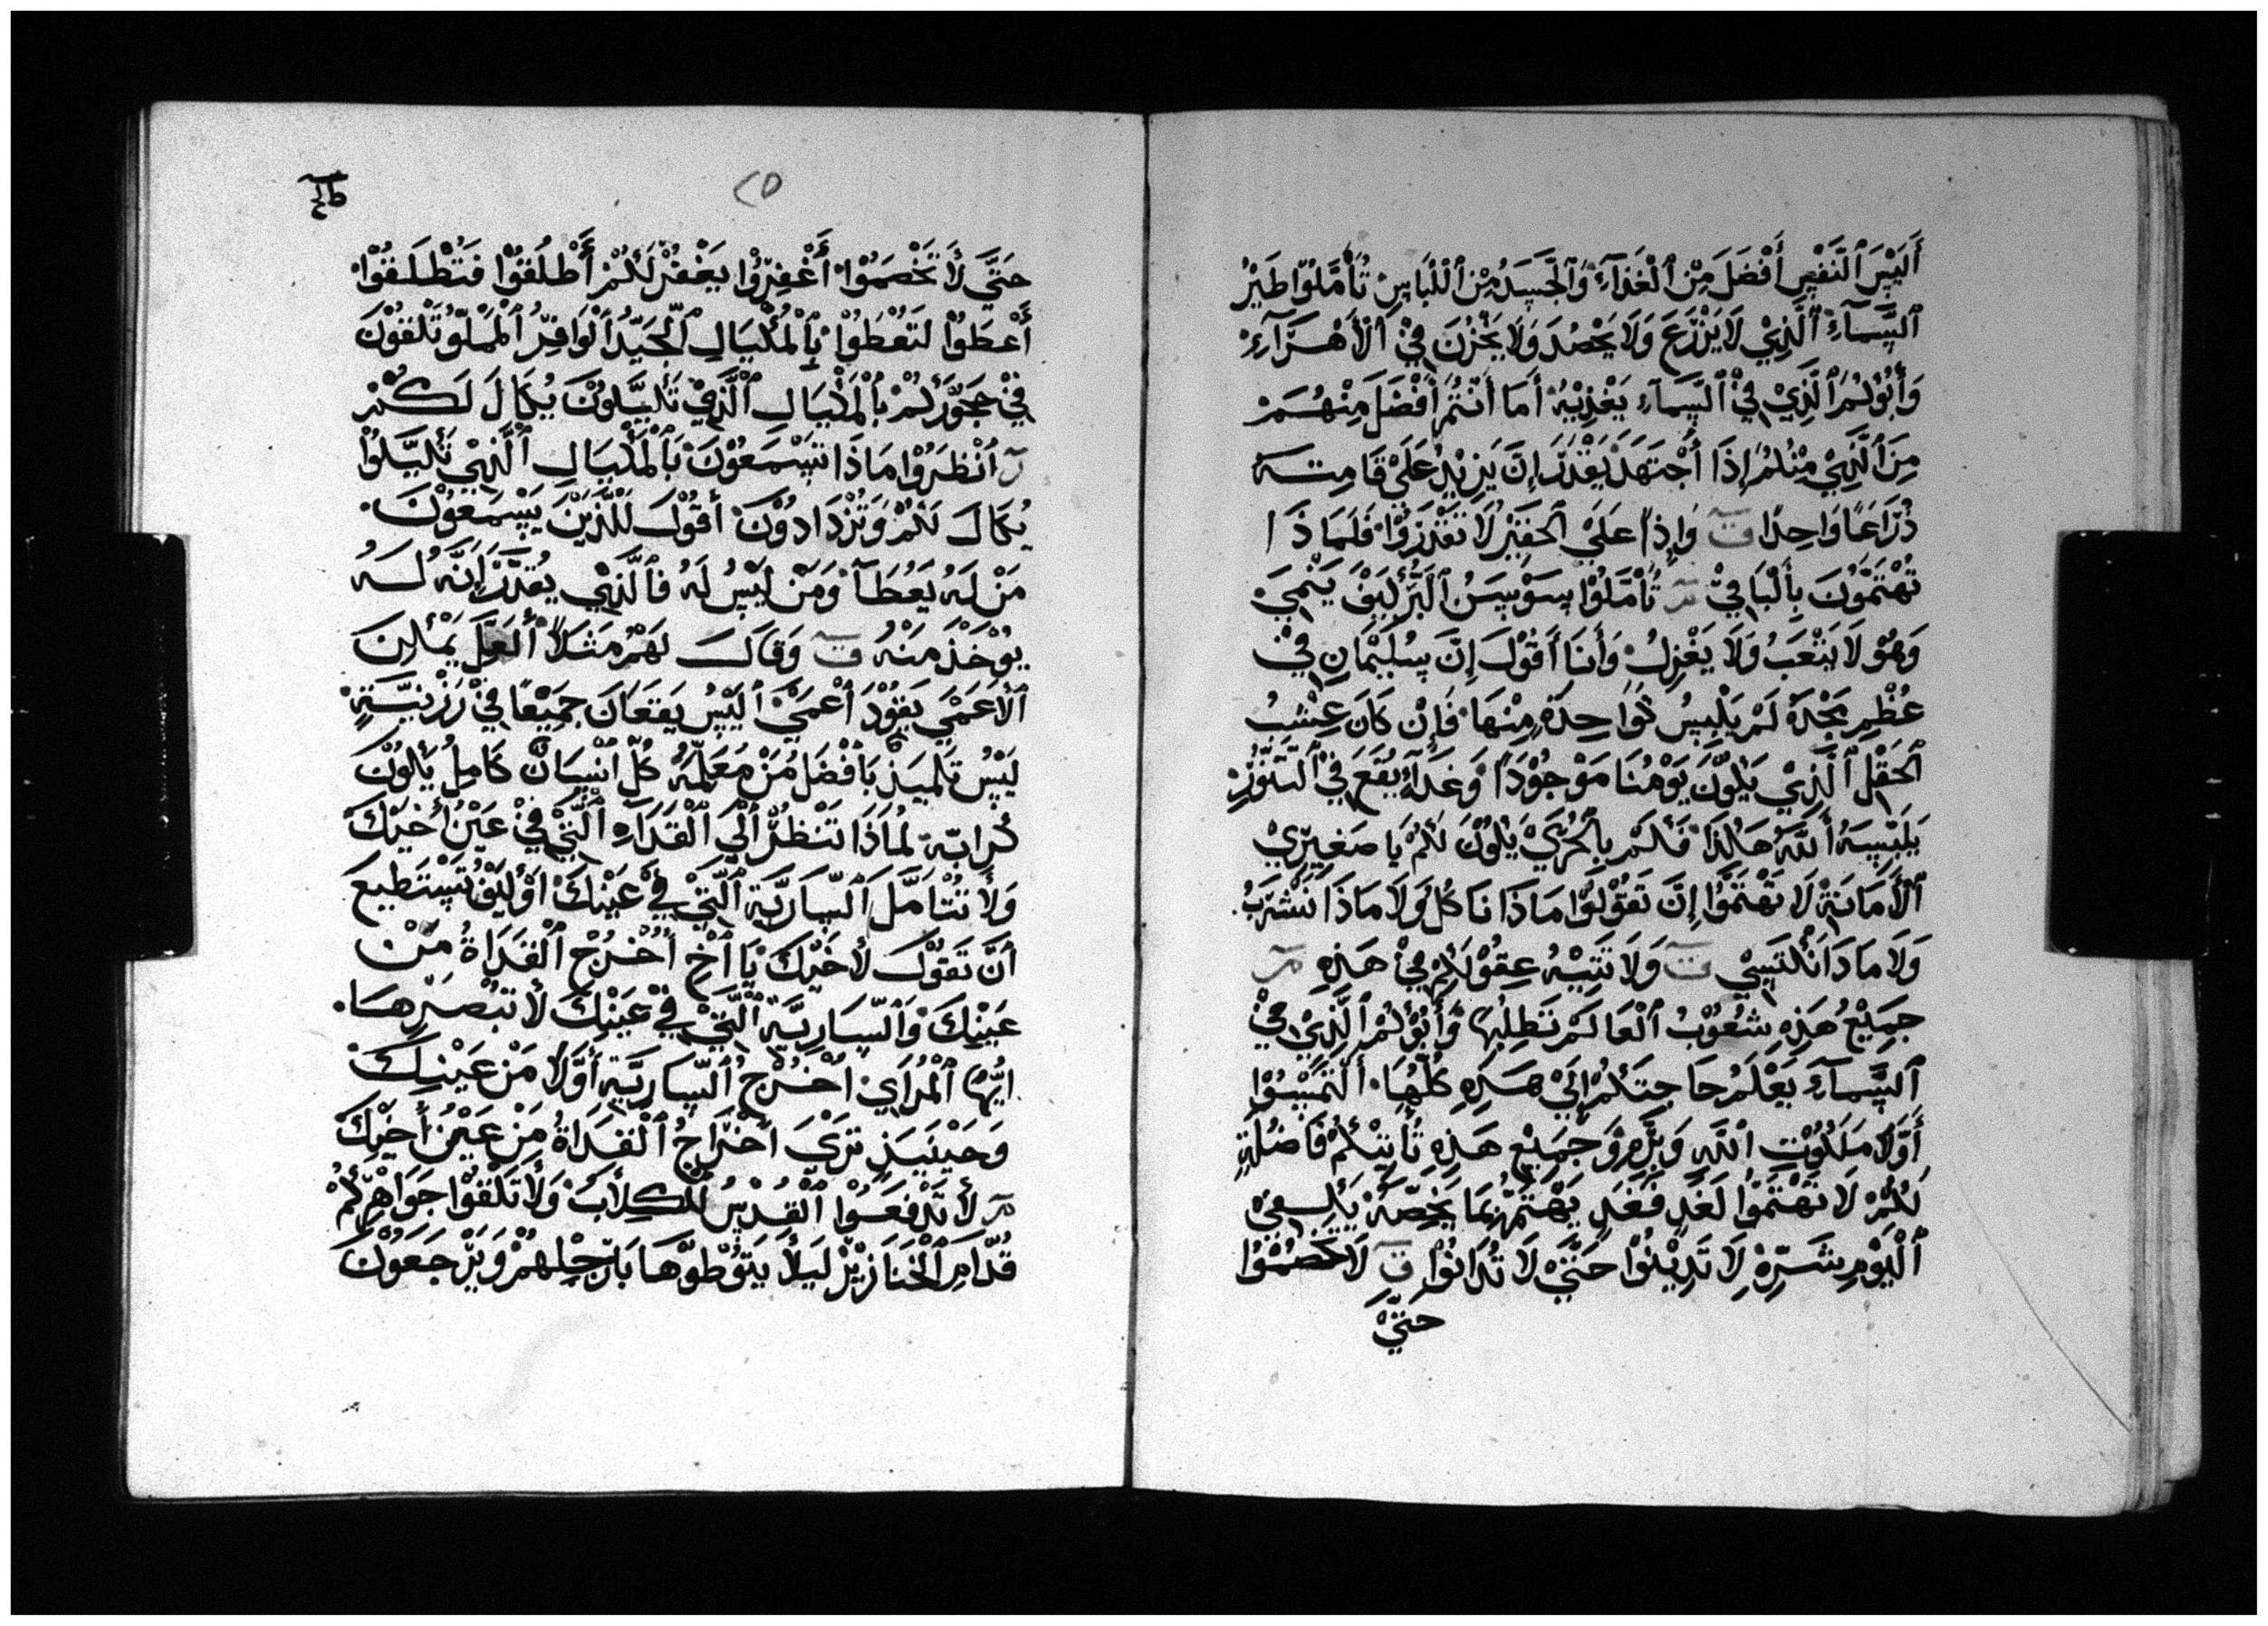 أَلَيْسَ ٱلنَّفْسِ أَفْضَلَ مِنْ ٱلْغَذَآءِ وَٱلْجَسَدُ مِنْ ٱللْبَاسِ تُأَمَّلُوْا طَيْرُ
ٱلسَّمَآءِ ٱلَّذِيْ لَا يَزْرَعَ وَلَا يَحْصُدَ وَلَا يَخْزُنَ فِيْ ٱلْأَهْرَآءِ
وَأَبُوْكُمْ ٱلَّذِيْ فِيْ ٱلسَّمَآءِ يَغْذِيْهُ أَمَا أَنْتُمْ أَفْضَلَ مِنْهُمْ
مِنَ ٱلَّذِيْ مِنْكُمْ إِذَا أَجْتَهَدَ يَقْدَرَ إِنَّ يَزِيْدُ عَلَيْ قَامِتَهُ
ذُرَاعًا وَاحِدًا ق وَإِذًا عَلَيْ ٱلحَقِيْرْ لَا تَقْدَرُوْا فَلَمَاذَا
تُهْتَمُّوْنَ بِٱلْبَاقِيْ مر تُأَمَّلُوْا سَوْسَنُ ٱلْبَرِّ كَيْفَ يَنْمِيَ
وَهُوَ لَا يَتْعَبُ وَلَا يَغْزِلُ وَأَنَا أَقُوْلَ إِنَّ سُلَيْمَانِ فِيْ
عُظْمِ مَجْدَهُ لَمْ يَلْبِسُ كَوَاحِدَةٍ مِنْهَا فَإِنْ كَانَ عِشْبُ
ٱلحَقْلِ ٱلَّذِيْ يَكُوْنَ يَوْمُنَا مَوْجُوْدَاً وَغَدَآءٍ يَقَعَ فِيْ ٱلتَّنُّوْرِ
يَلَبِّسَهُ أَللَّهُ هَاكَذَا فَكَمْ بِٱلْحُرِيْ يَكُوْنَ لَكُمْ يَا صَغِيْرِيْ
ٱلْأَمَانَةِ لَا تَهْتَمُّوْا إِنَّ تَقُوْلُوْا مَاذَا نَاكُلُ وَلَا مَاذَا نَشْرَبُ
وَلَا مَاذَا نَكْتَسِيْ ق وَلَا تَتِيْهُ عِقُوْلَكُمْ فِيْ هَذِهِ مر
جَمِيْعُ هَذِهِ شُعُوْبُ ٱلْعَالَمْ تَطِلِبُهَا وَأَبُوْكُمْ ٱلَّذِيْ فِيْ
ٱلسَّمَآءَ يَعْلَمُ حَاجِتَكُمْ إِلَيْ هَذِهِ كُلُّهَا أَلْتَمِسُوْا
أَوَّلًا مَلَكُوْتِ ٱللَّهِ وَبِرَّهُ وَجَمِيْعِ هَذِهِ تُأْتِيْكُمْ فَاضُلَةٍ
لَكُمْ لَا تَهْتَمُّوْا لَغَدٍ فَغَدٍ يَهْتَمُّ بِمَا يَخُصَّهُ يَكْفِيْ
ٱلْيَوْمِ شَرَّهُ لَا تَدِيْنُوْا حَتَّيْ لَا تُدَانُوْا ق لَا تَخْصُمُوْا
حَتَّيْ
ط
٢٥
حَتَّيَ لَا تَخْصَمُوْا أَغْفِرُوْا يَغْفَرْ لَكُمْ أَطْلُقُوْا فَتُطْلَقُوْا
أَعْطَوْا لَتَعْطَوْا بِٱلْمُكْيَالِ ٱلْجَيِّدُ ٱلْوَافِرُ ٱلْمَمْلُوْ تَلْقَوْنَ
فِيْ حَجَوْرَكُمْ بِٱلْمَكْيَالِ ٱلَّذِيْ تَكَيَّلُوْنَ يُكَالَ لَكُمْ
مر أَنْظَرُوْا مَاذَا تَسْمَعُوْنَ بَٱلْمَكْيَالِ ٱلَّذِيْ تَكَيَّلُوْا
يُكَالَ لَكُمْ وَتُزْدَادُوْنَ أَقُوْلَ لَلَّذِيْنَ يَسْمَعُوْنَ
مَنْ لَهُ يَعُطَآ وَمَنْ لَيْسُ لَهُ فَٱلَّذِيْ يُقَدِّرْ إِنَّهُ لَهُ
يُوْخَذْ مَنْهُ ق وَقَالَ لَهُمْ مَثَلًا أَلَعَلَّ يَمْكِنَ
ٱلْأَعَمْيَ يَقُوْدَ أَعْمَيْ أَلَيْسُ يَقَعَانَ جَمِيْعًا فِيْ رَزْنِيَّةٍ
لَيْسُ تَلْمِيَذْ بَأَفْضَلُ مُنْ مَعَلِّمَهُ كُلُّ أَنْسَانٌ كَامِلُ يَكُوْنَ
كُرَابّهِ لُمَاذَا تَنْظُرُ أَلَيَ ٱلْقَدَآءِ ٱلَّتِيْ فِيْ عَيْنُ أَخِيْكَ
وَلَا تُتَأَمَّلَ ٱلسَّارِيَّةِ ٱلَّتِيْ فِيْ عَيْنِكَ أَوْكِيْفُ تُسْتَطِيعَ
أَنَّ تَقُوْلَ لَأَخِيْكَ يَا أَخِ أُخْرُجْ ٱلْقَذَاةُ مِنْ
عَيْنِكَ وَٱلسَّارِيَّهِ ٱلَّتِيْ فِيْ عَيْنِكَ لَا تَبْصَرِهَا
أيُّهَا ٱلْمُرَآيْ أُخْرُجْ ٱلسَّارِيَّهِ أَوَّلًا مَنْ عَيْنِكَ
وَحَيْنَيَذٍ تَرَيَ أَخْرَاجُ ٱلْقَذَاةُ مِنْ عَيْنُ أَخِيْكَ
مر لَا تَدْفَعُوْا ٱلْقُدْسُ لَلكِلَابُ وَلَا تَلْقَوْا جَوَاهِرَكُمْ
قُدَّامِ ٱلْخَنَازِيْرْ لَيَلَّا يَتَوُطَوْهَا بَأَرْجِلِهُمْ وَيَرْجَعُوْنَ